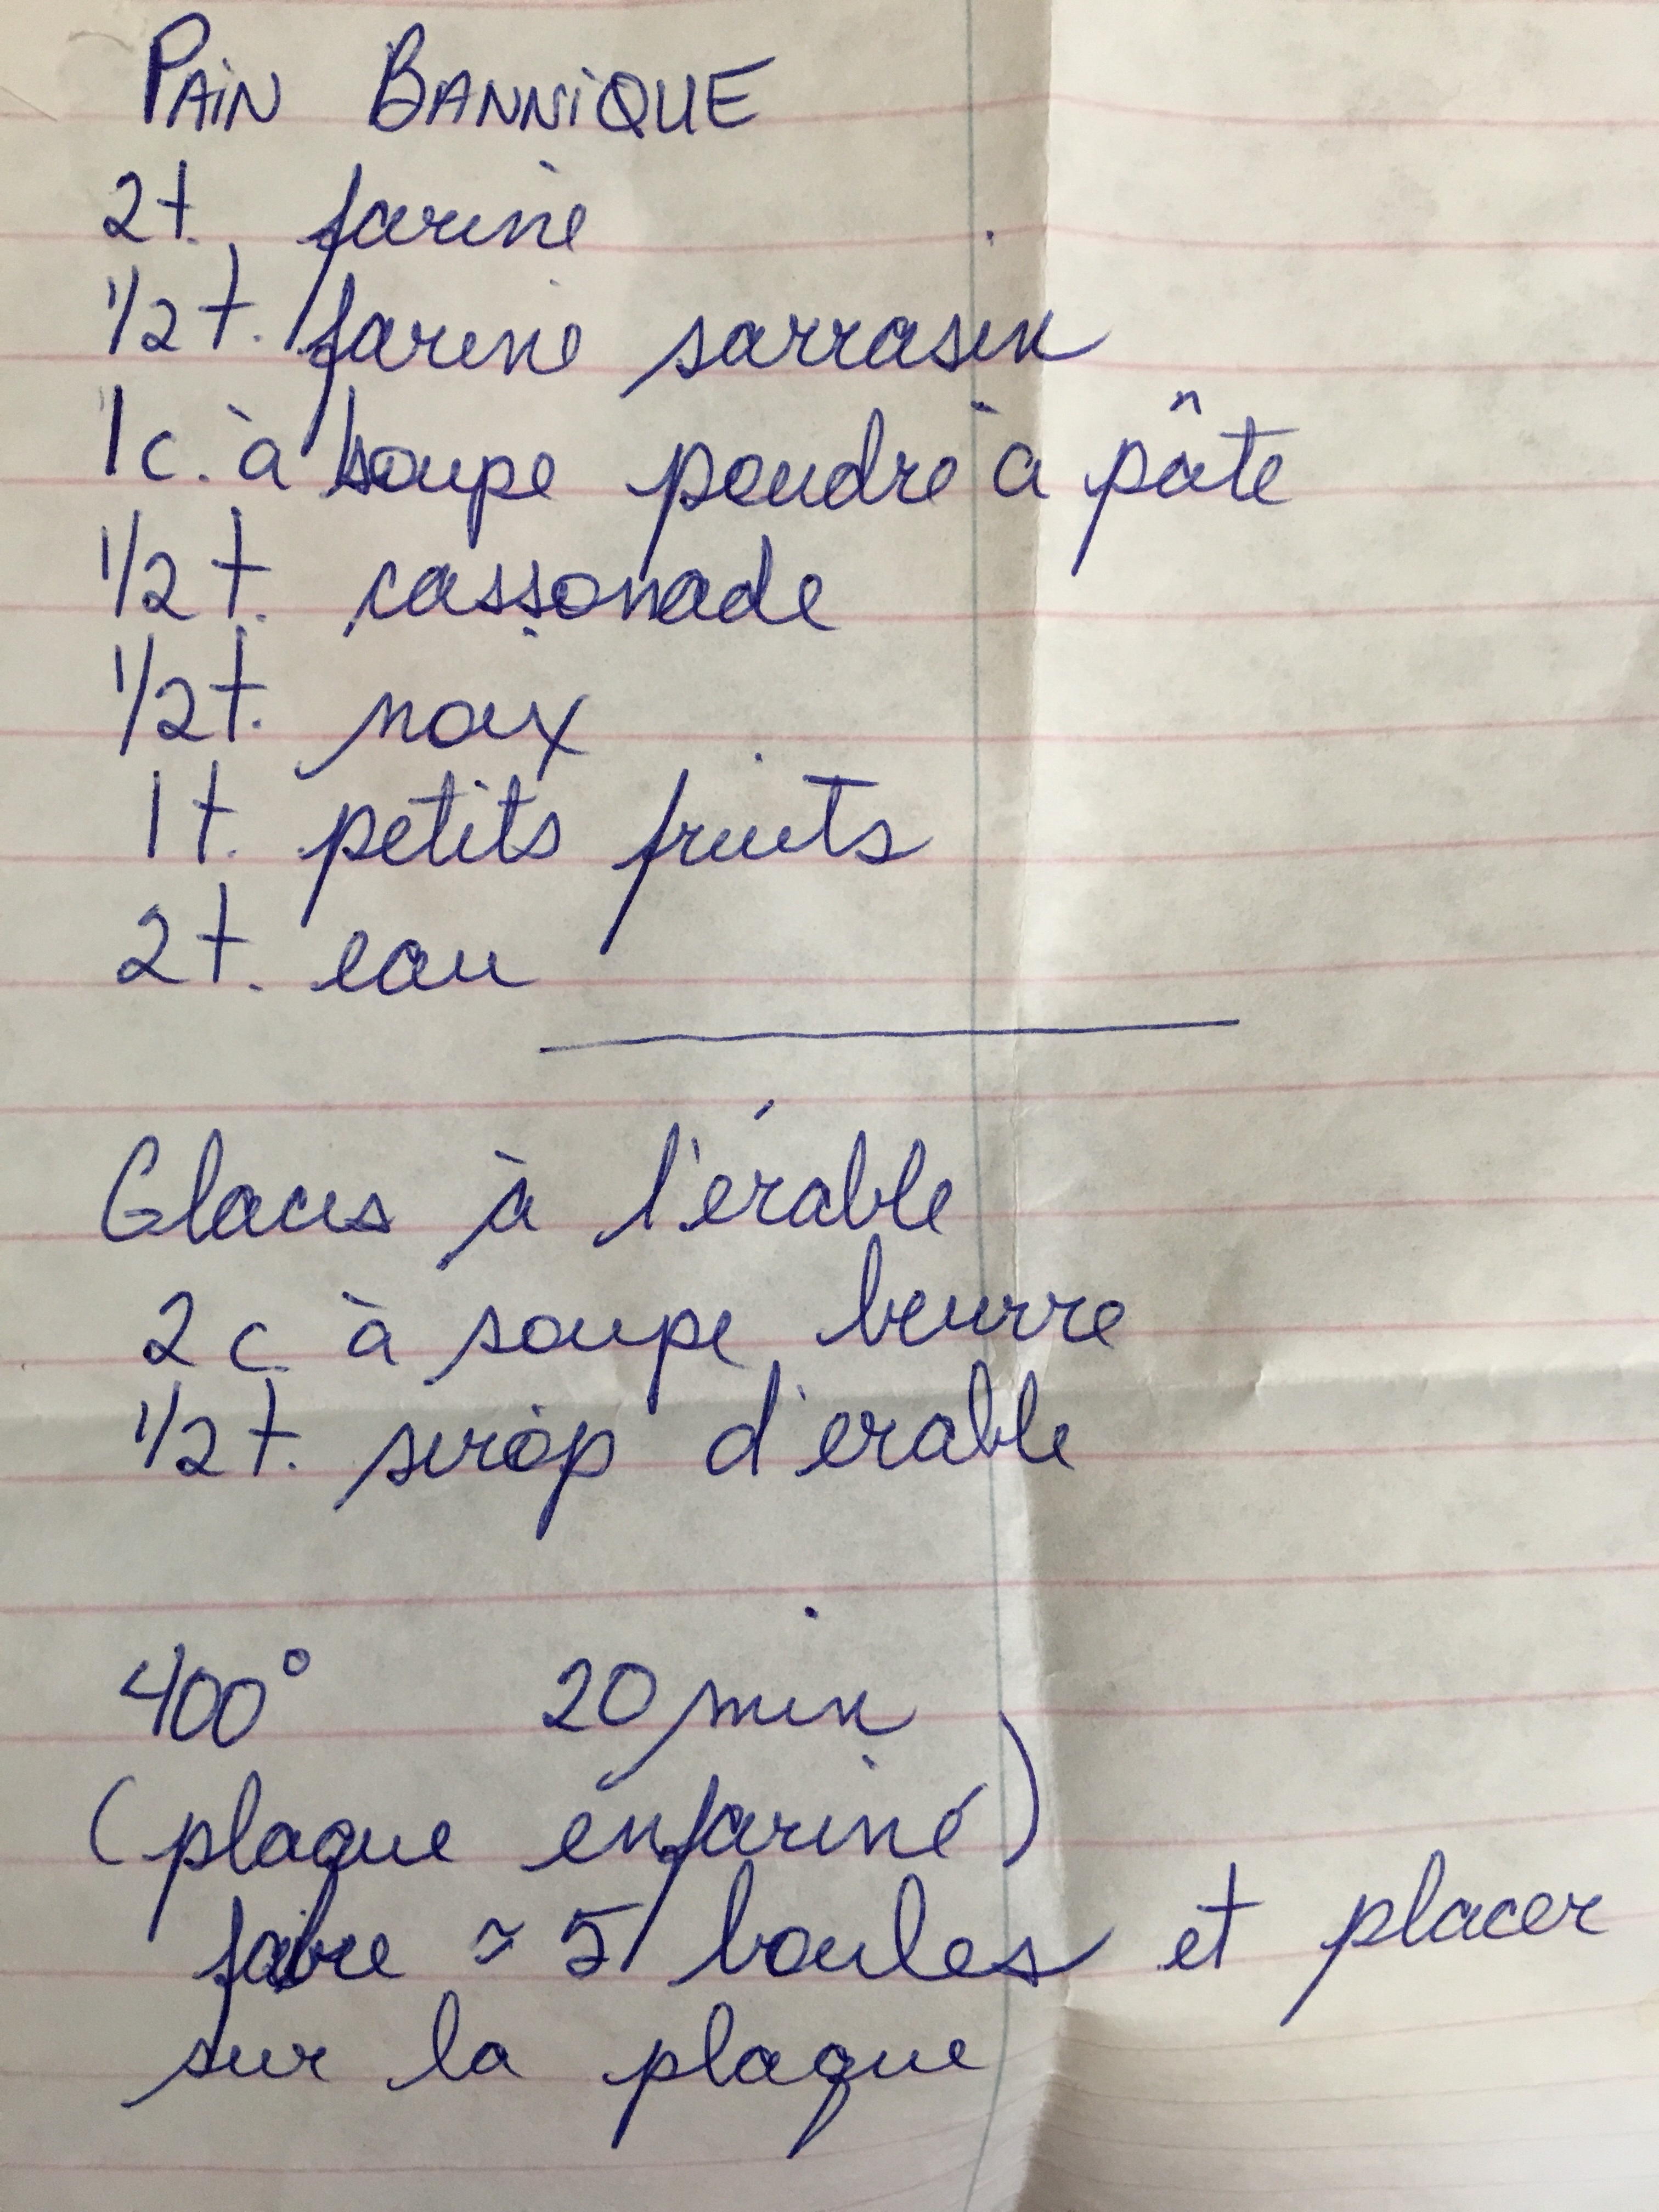 PAiN BANNiQUE
2t. farine
1/2 t. farine sarrasin
1 c. à soupe poudre à pâte
1/2 t. cassonade
1/2 t. noix
1 t. petits fruits
2 t. eau
Glacis à l'érable
2 c. à soupe beurre
1/2 t. sirop d'érable
400° 20 min
(plaque enfariné)
faire ~ 5 boules et placer
sur la plaque